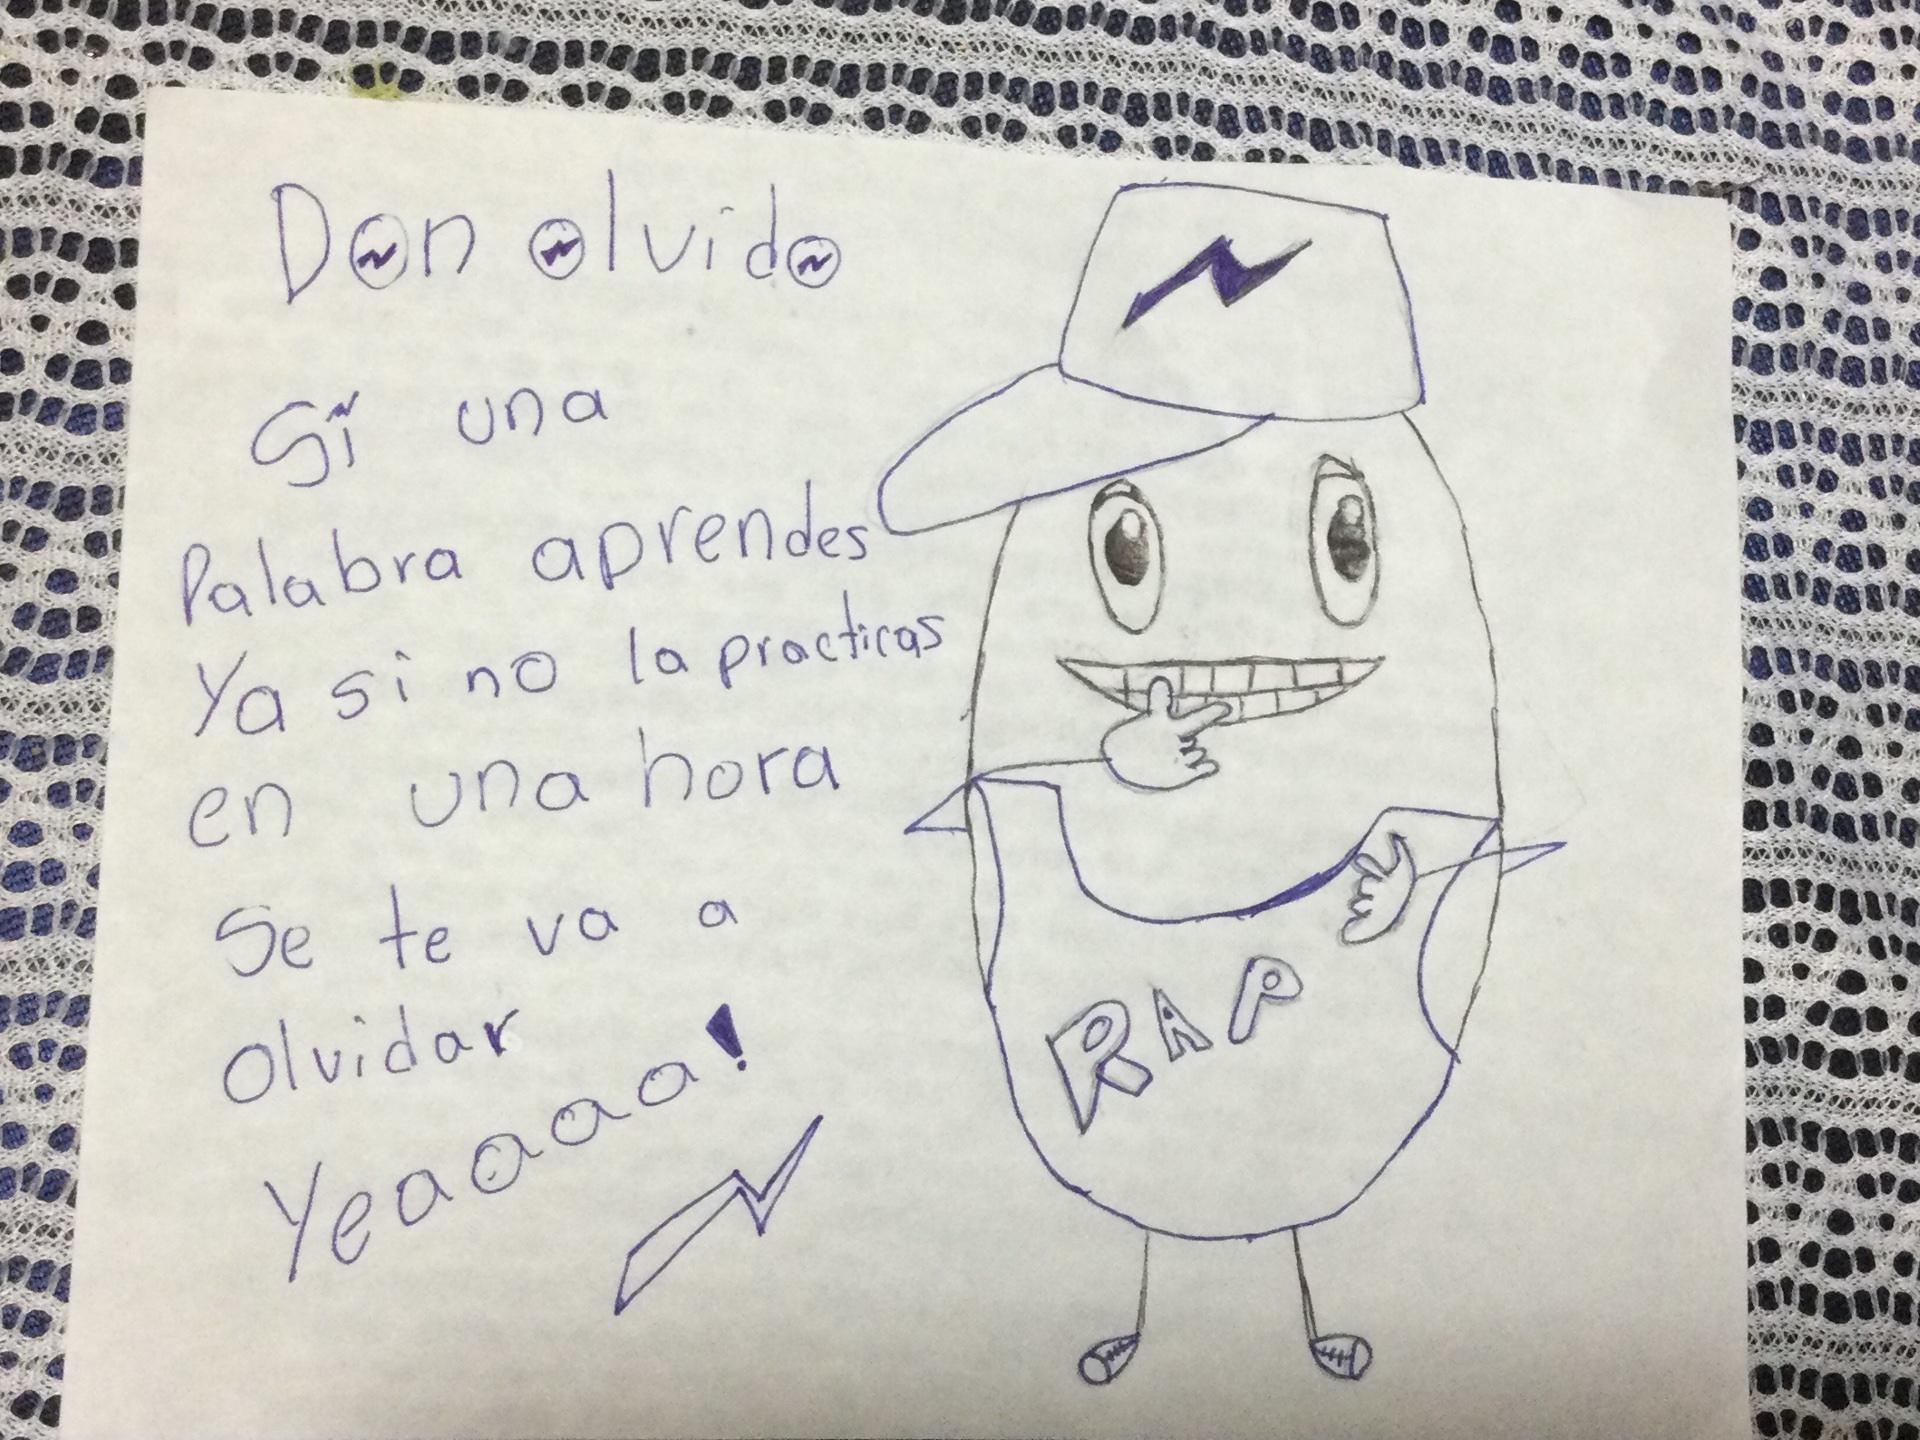 Don olvido
Sí una
Palabra aprendes
Ya si no la practicas
en una hora
Se te va a
olvidar
Yeaaaa!
RAP